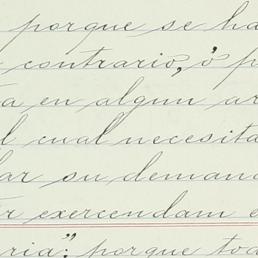 porque se ha
contrario, ó p
a en algun ar
l cual necesita
ar su demand
r exercendam e
ria": porque tod